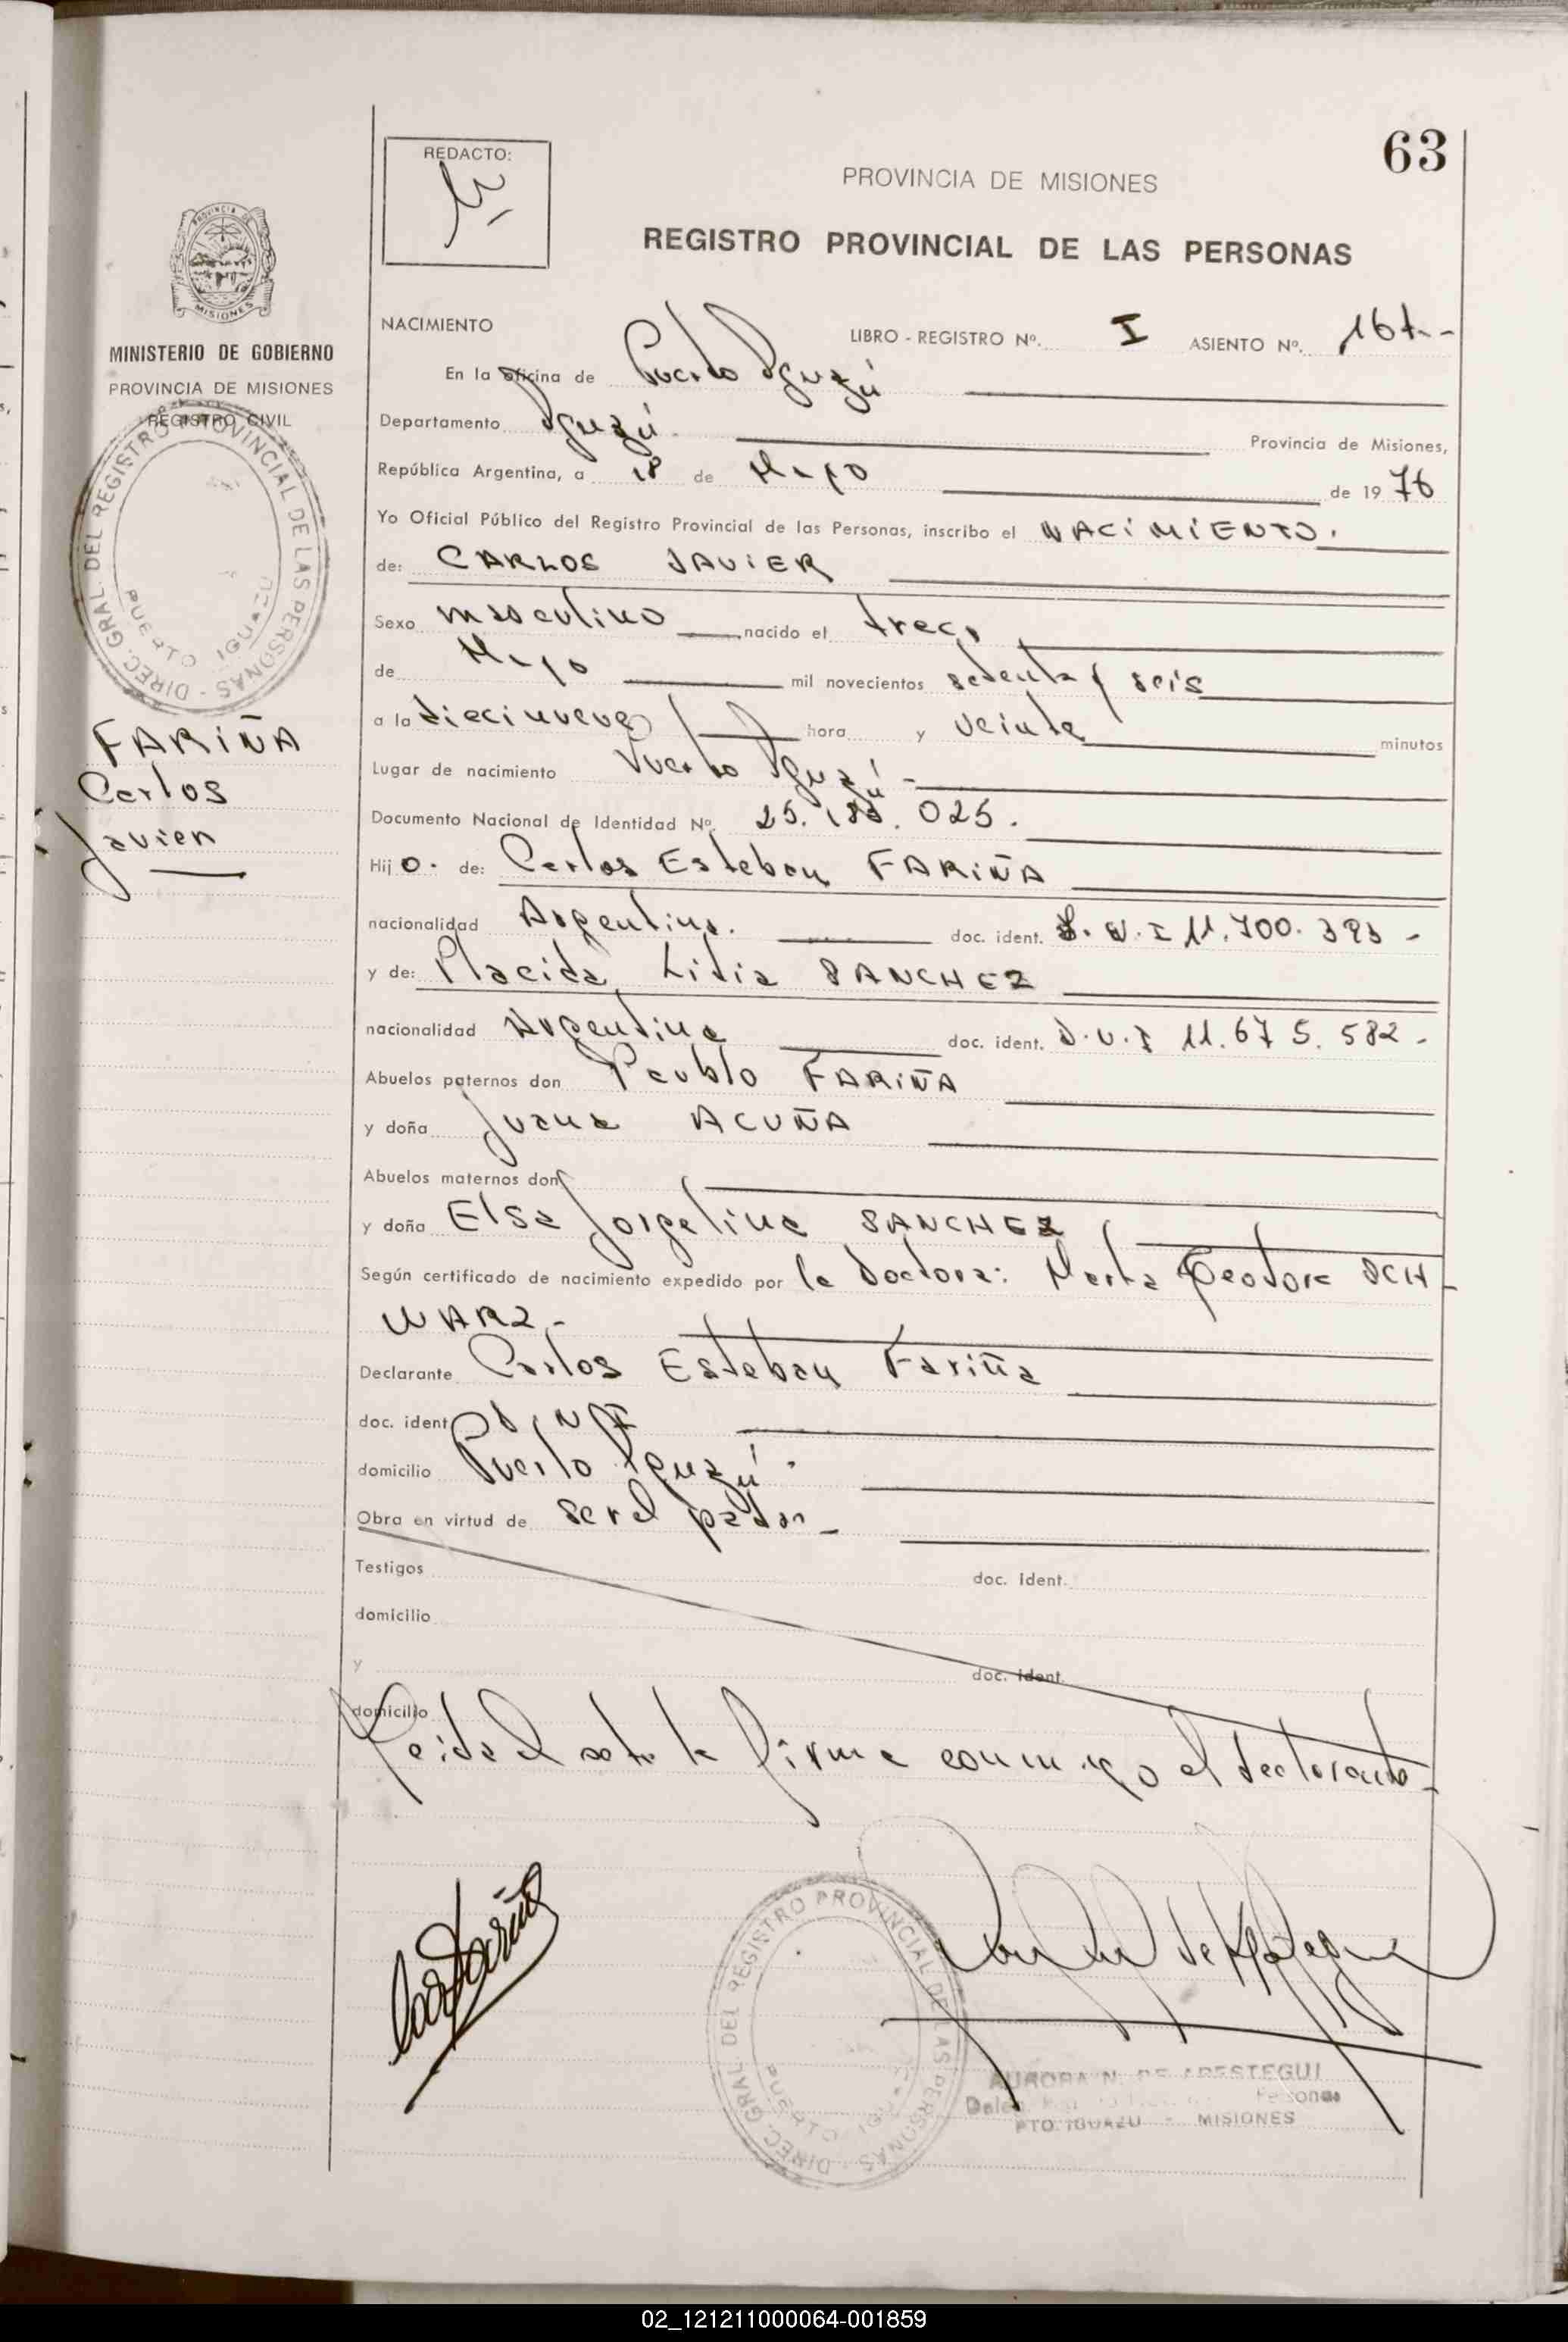 63
REDACTO:
PROVINCIA DE MISIONES
REGISTRO PROVINCIAL DE LAS PERSONAS
PROVINCIA DE
MISIONES
MINISTERIO DE GOBIERNO
PROVINCIA DE MISIONES
REGISTRO CIVIL
DIREC. GRAL. DEL REGISTRO PROVINCIAL DE LAS PERSONAS
PUERTO IGUAZU
FARIÑA
Carlos
Javier
NACIMIENTO LIBRO - REGISTRO Nº. I ASIENTO Nº. 167.-
En la oficina de Puerto Iguazú
Departamento Iguazú. Provincia de Misiones,
República Argentina, a 18 de Mayo de 1976
Yo Oficial Público del Registro Provincial de las Personas, inscribo el NACIMIENTO.
de: CARLOS JAVIER
Sexo masculino nacido el trece
de Mayo mil novecientos setenta y seis
a la diecinueve hora y veinte minutos
Lugar de nacimiento Puerto Iguazú -
Documento Nacional de Identidad Nº. 25. 025.
Hijo. de: Carlos Esteban FARIÑA
nacionalidad Argentina. doc. ident. D. N. I 11.700.393 -
y de: Placida Lidia SANCHEZ
nacionalidad Argentina doc. ident. D.N.I 11.675.582 -
Abuelos paternos don Paublo FARIÑA
y doña Juana ACUÑA
Abuelos maternos don
y doña Elsa Jorgelina SANCHEZ
Según certificado de nacimiento expedido por la Doctora: Marta Teodora SCH-
WARZ -
Declarante Carlos Esteban Fariña
doc. ident D.N.I
domicilio Puerto Iguazú.
Obra en virtud de ser el padre -
Testigos doc. ident.
domicilio
y doc. ident.
domicilio
Leida el acta la firma conmigo el declarante-
DIREC. GRAL. DEL REGISTRO PROVINCIAL DE LAS PERSONAS
PUERTO IGUAZU
AURORA N. DE ARESTEGUI
PTO. IGUAZU - MISIONES
02_121211000064-001859